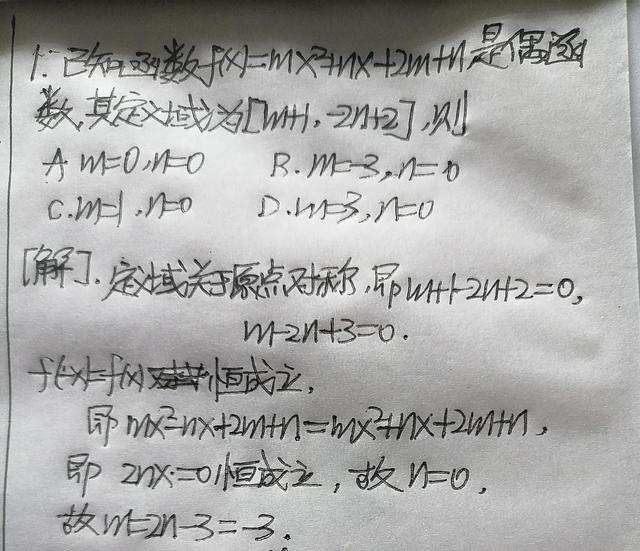 1. 已知函数f(x)=mx²+nx+2m+n是偶函
数,其定义域为[m+1,-2n+2],则
A m=0,n=0 B.m=-3,n=0
C.m=1,n=0 D.m=3,n=0
[解].定义域关于原点对称,即m+1-2n+2=0,
m-2n+3=0.
f(-x)=f(x)恒成立,
即mx²-nx+2m+n=mx²+nx+2m+n,
即 2nx=0恒成立,故n=0,
故m=2n-3=-3.